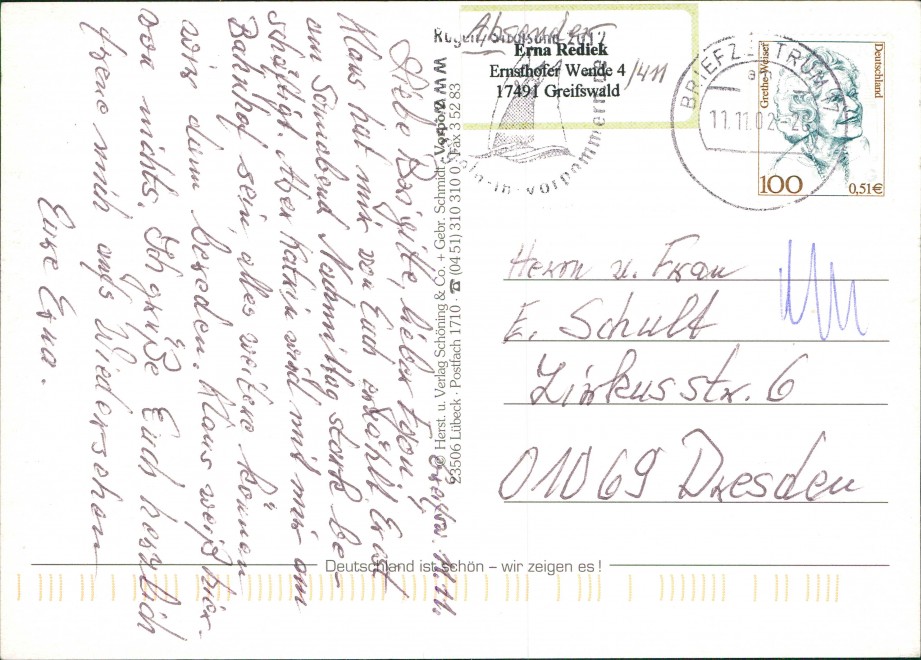 Greifsw. 11.11.
Liebe Brigitte, lieber Egon!
Klaus hat mir von Euch erzählt. Er ist
am Sonnabend Nachmittag stark be-
schäftigt. Aber Katrin wird mit mir am
Bahnhof sein, alles weitere können
wir dann bereden. Klaus weiß hier-
von nichts. Ich grüße Euch herzlich
freue mich aufs Wiedersehen
Eure Erna.
© Herst. u. Verlag Schöning & Co. + Gebr. Schmidt
23506 Lübeck · Postfach 1710 · ☎ (04 51) 310 310 0 · Fax 3 52 83
Absender
Erna Rediek
Ernsthofer Wende 4 /411
17491 Greifswald
BRIEFZENTRUM 17
11.11.02
Grethe Weiser
Deutschland
100
0,51€
Herrn u. Frau
E. Schult
Zirkusstr. 6
01069 Dresden
Deutschland ist schön – wir zeigen es!